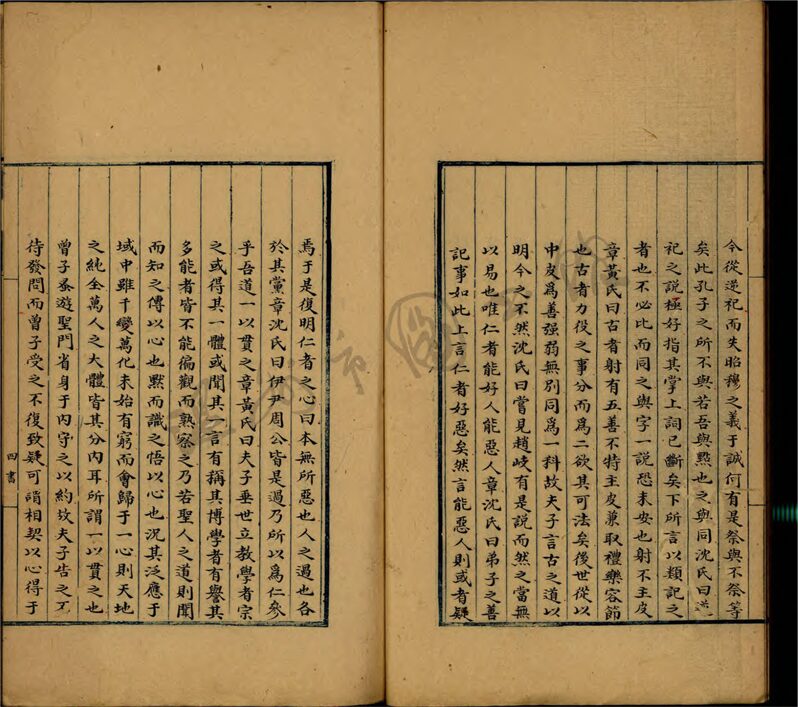 今從逆祀而失昭穆之義于誠何有是祭與不祭等
矣此孔子之所不與若吾與㸃也之與同沈氏曰逆
祀之說極好指其掌上詞已斷矣下所言以類記之
者也不必比而同之與字一說恐未安也射不主皮
章黃氏曰古者射有五善不特主皮兼取禮樂容節
也古者力役之事分而爲二欲其可法矣後世從以
中皮爲善强弱無別同爲一科故夫子言古之道以
明今之不然沈氏曰嘗見趙岐有是說而然之當無
以易也唯仁者能好人能惡人章沈氏曰弟子之善
記事如此上言仁者好惡矣然言能惡人則或者疑
焉于是復明仁者之心曰本無所惡也人之過也各
於其黨章沈氏曰伊尹周公皆是過乃所以爲仁參
乎吾道一以貫之章黃氏曰夫子垂世立教學者宗
之或得其一體或聞其一言有稱其博學者有譽其
多能者皆不能徧觀而熟察之乃若聖人之道則聞
而知之傳以心也黙而識之悟以心也況其泛應于
域中雖千變萬化未始有窮而會歸于一心則天地
之純全萬人之大體皆其分內耳所謂一以貫之也
曾子蚤遊聖門省身于內守之以約故夫子告之不
待發問而曾子受之不復致疑可謂相契以心得于
四書